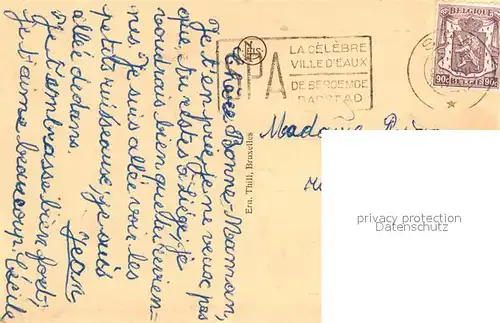 Chère Bonne-Maman,
Je t'en prie, je ne veux pas
que tu restes à Liège, je
voudrais bien que tu revien-
nes. Je suis allée voir les
petits ruisseaux, je suis
allée dedans. Jean
Je t'embrasse bien fort,
je t'aime beaucoup. Cécile
Ern. Thill, Bruxelles
SPA
LA CÉLÈBRE
VILLE D'EAUX
DE BEROEMDE
BADSTAD
BELGIQUE
90c 90c
BELGIE
Madame
privacy protection
copyright protection